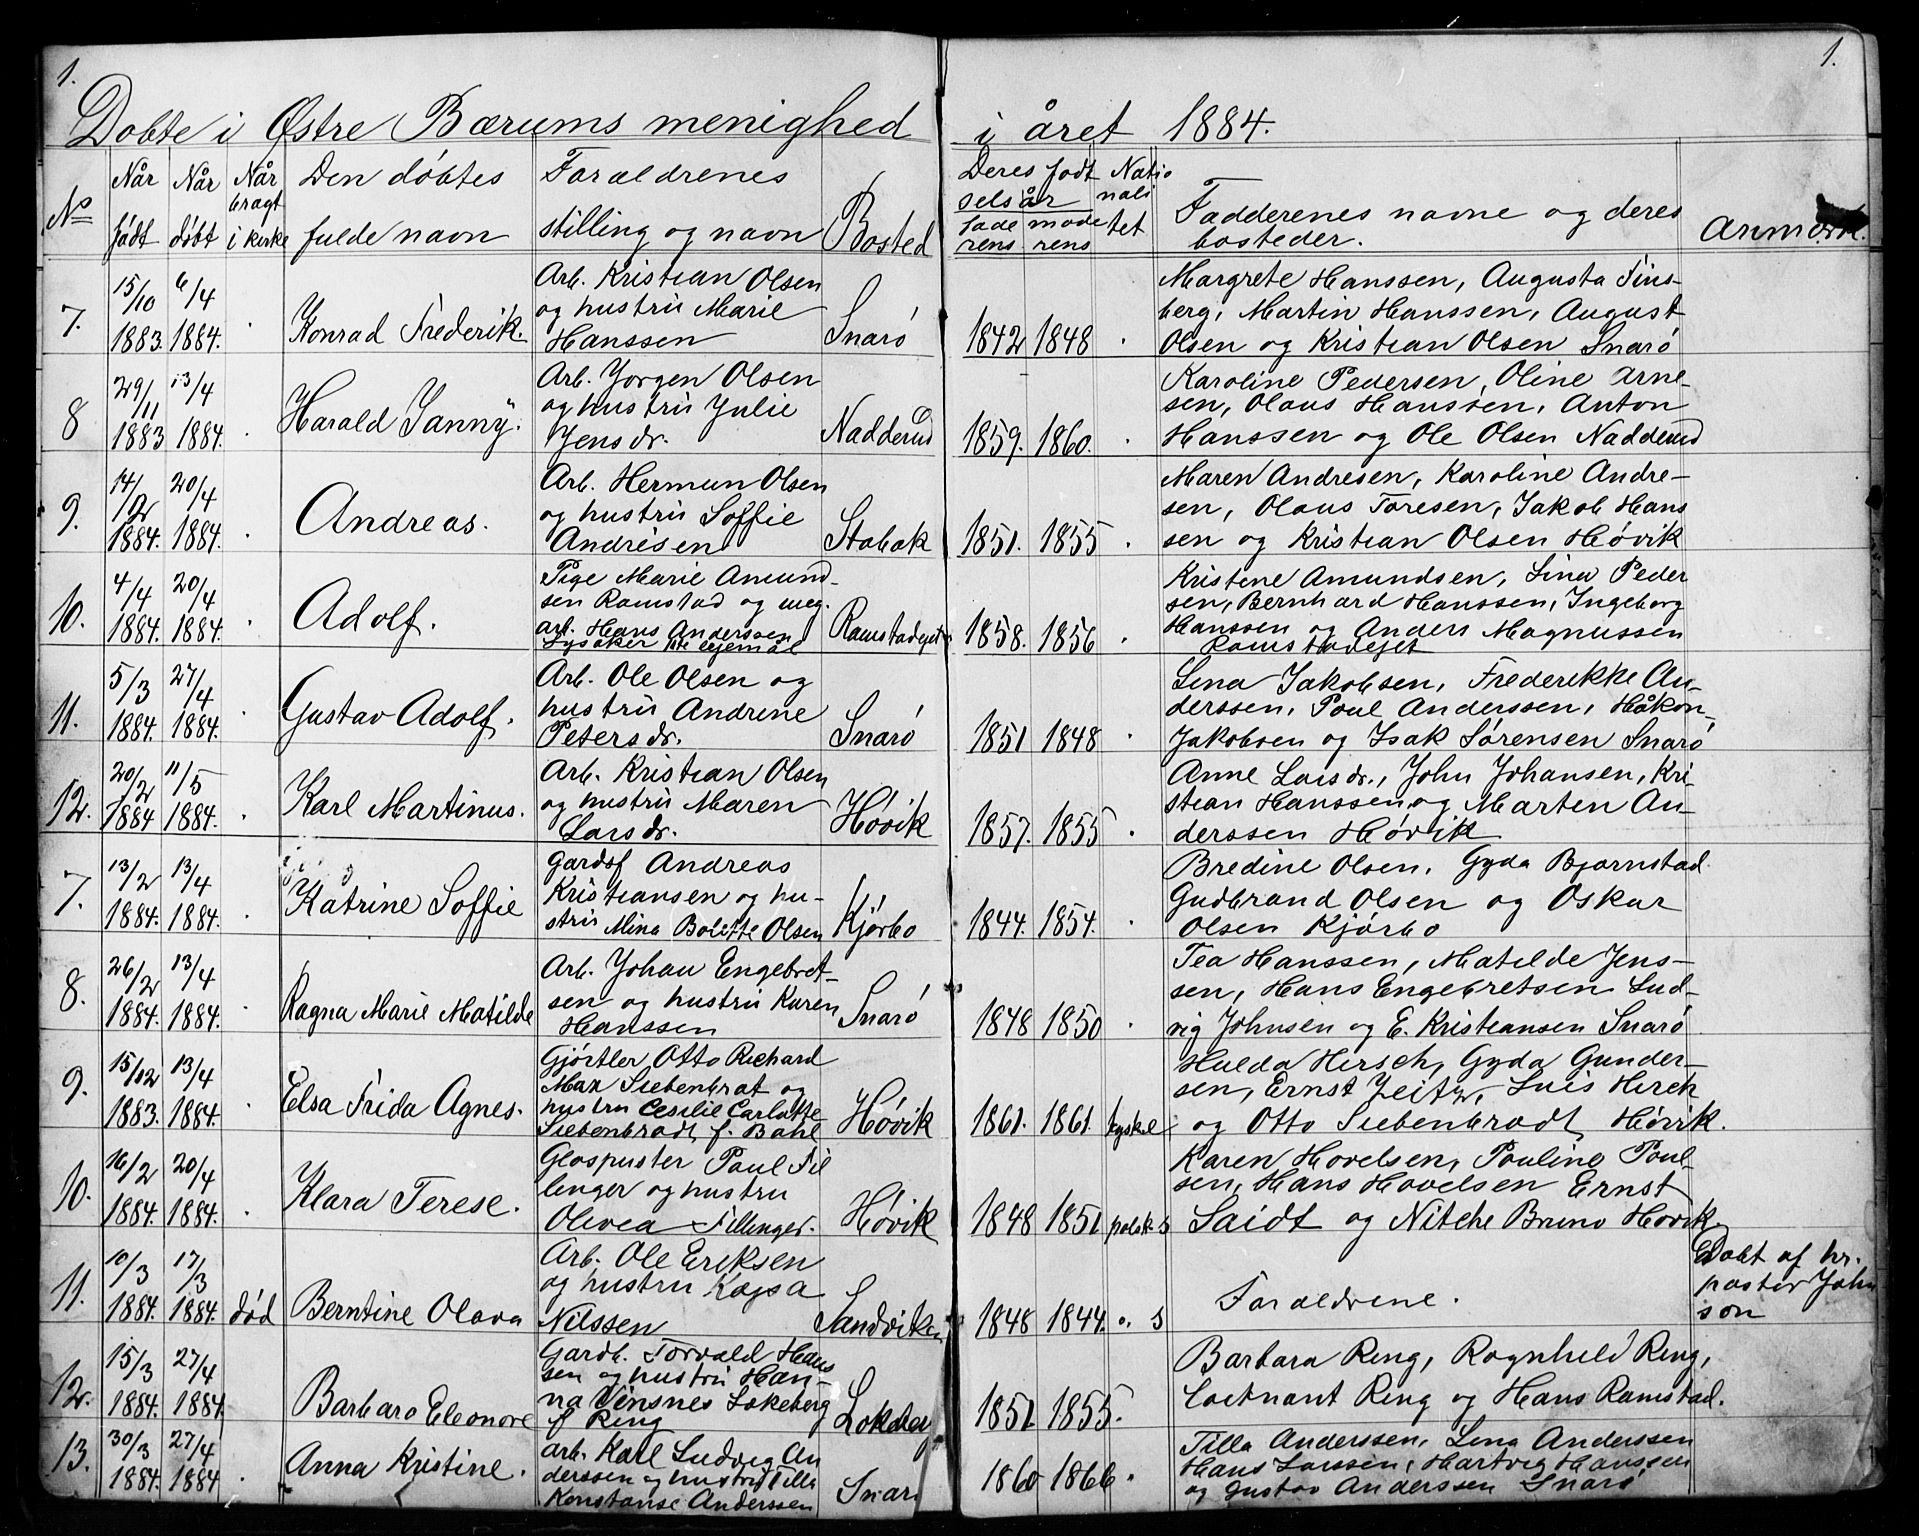 1.
1.
Døbte i Østre Bærums menighed i året 1884.
No
Når født
Når døbt
Når bragt i kirke
Den døbtes fulde navn
Forældrenes stilling og navn
Bosted
Deres fødselsår
faderens
moderens
Nationalitet
Faddernes navne og deres bosteder.
Anmærk.
7.
15/10 1883.
6/4 1884.
Konrad Frederik.
Arb. Kristian Olsen
og hustru Marie
Hanssen
Snarø
1842
1848
Margrete Hanssen, Augusta Fins-
berg, Martin Hanssen, August
Olsen og Kristian Olsen Snarø
8
29/11 1883
13/4 1884.
Harald Janny.
Arb. Jørgen Olsen
og hustru Julie
Jensdr.
Nadderud
1859.
1860.
Karoline Pedersen, Oline Arne-
sen, Olaus Hanssen, Anton
Hanssen og Ole Olsen Nadderud
9.
14/12 1884.
20/4 1884.
Andreas.
Arb. Herman Olsen
og hustru Soffie
Andresen
Stabæk
1851.
1855
Maren Andresen, Karoline Andre-
sen, Olaus Toresen, Jakob Hans
sen og Kristian Olsen Høvik
10.
4/4 1884.
20/4 1884.
Adolf.
Pige Marie Amund-
sen Ramstad og ung.
arb. Hans Anderssen
Lysaker 1ste lejemål
Ramstadejet
1858.
1856
Kristene Amundsen, Lina Peder
sen, Bernhard Hanssen, Ingeborg
Hanssen og Anders Magnussen
Ramstadejet
11.
5/3 1884.
27/4 1884.
Gustav Adolf.
Arb. Ole Olsen og
hustru Andrine
Petersdr.
Snarø
1851
1848
Lina Jakobsen, Frederikke An-
derssen, Poul Anderssen, Håkon
Jakobsen og Isak Sørensen Snarø
12.
20/2 1884
11/5 1884.
Karl Martinus.
Arb. Kristian Olsen
og hustru Maren
Larsdr.
Høvik
1857.
1855
Anne Larsdr., John Johansen, Kri
stian Hanssen og Marten An-
derssen Høvik
7.
13/2 1884.
13/4 1884.
Katrine Soffie
Gårdsf Andreas
Kristiansen og hu-
stru Mina Bolette Olsen
Kjørbo
1844.
1854.
Bredine Olsen, Gyda Bjørnstad
Gudbrand Olsen og Oskar
Olsen Kjørbo
8.
26/2 1884.
13/4 1884.
Ragna Marie Matilde
Arb. Johan Engebret-
sen og hustru Karen
Hanssen
Snarø
1848
1850
Tea Hanssen, Matilde Jens-
sen, Hans Engebretsen Lud-
vig Johnsen og E. Kristiansen Snarø
9.
15/12 1883.
13/4 1884.
Elsa Frida Agnes.
Gjørtler Otto Richard
Max Siebenbrat og
hustru Cesilie Carlotte
Siebenbrodt f. Bahl
Høvik
1861.
1861.
tyske
Hulda Hersch, Gyda Gunder-
sen, Ernst Zeitz, Luis Herch
og Otto Siebenbrodt Høvik.
10.
16/2 1884.
20/4 1884.
Klara Terese.
Glaspuster Paul Fil
lenger og hustru
Olivea Fillinger.
Høvik
1848
1851
polsk s
Karen Hovelsen, Pauline Poul-
sen, Hans Hovelsen Ernst
Saidt og Nitche Bruno Høvik
11.
10/3 1884.
17/3 1884.
død
Berntine Olava
Arb. Ole Eriksen
og hustru Kajsa
Nilssen
Sandviken
1848
1844.
o. s
Forældrene.
Døbt af hr.
pastor John
son
12.
15/3 1884.
27/4 1884
Barbara Eleonore
Gårdb. Torvald Hans
sen og hustru Han-
na Vinsnes Løkeberg
f Ring
Løkeberg
1851
1855.
Barbara Ring, Ragnhild Ring,
Løetnant Ring og Hans Ramstad.
13.
30/3 1884.
27/4 1884
Anna Kristine.
arb. Karl Ludvig An
derssen og hustru Tilla
Konstanse Anderssen
Snarø
1860
1866
Tilla Anderssen, Lina Anderssen
Hans Larssen, Hartvig Hanssen
og Gustav Anderssen Snarø